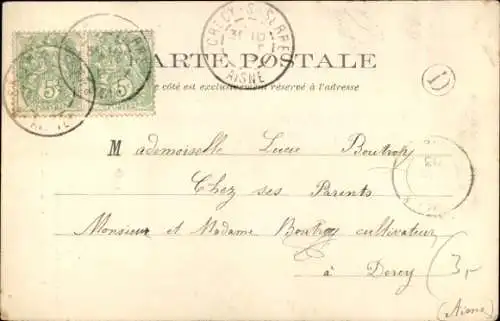 CRECY-S-SERRE
AISNE
CARTE POSTALE
Ce côté est exclusivement réservé à l'adresse
D
5 5
Mademoiselle Lucie Boutroy
Chez ses Parents
Monsieur et Madame Boutroy cultivateur
à Dercy
3,-
(Aisne)